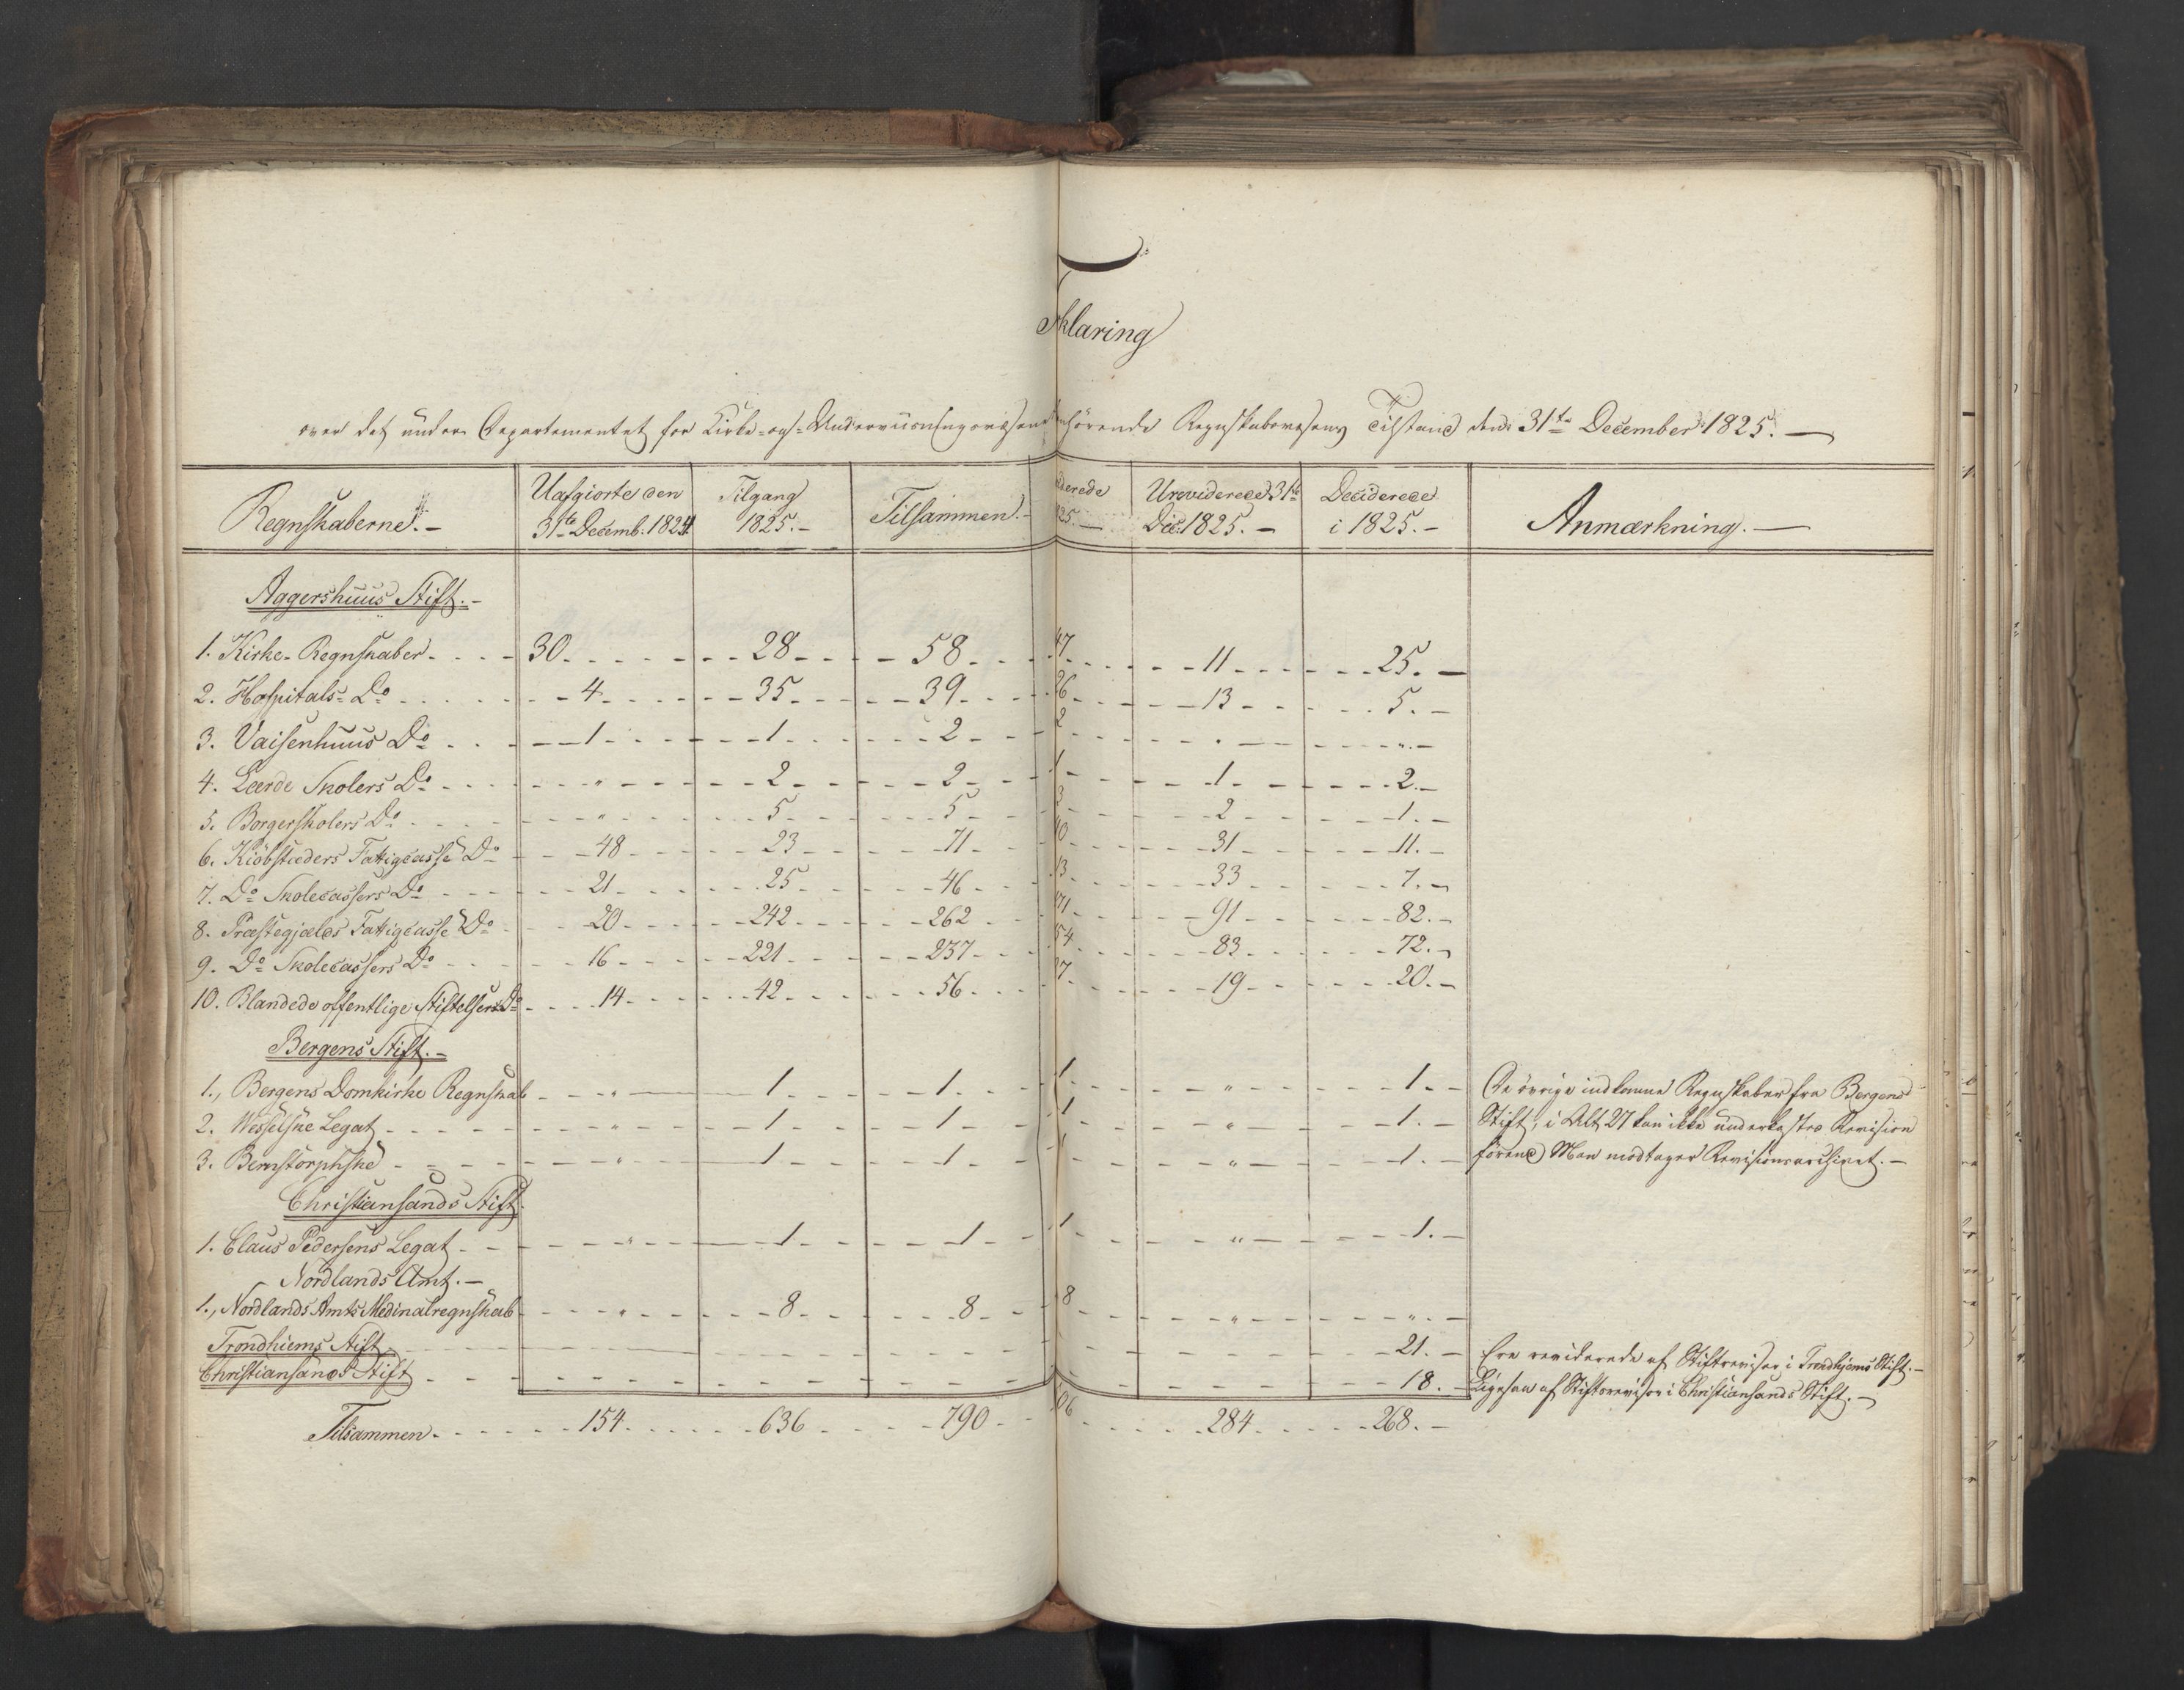 Forklaring
over det under Departementet for Kirke- og Underviisningsvæsenet henhörende Regnskabsvæsens Tilstand den 31te December 1825.—
Regnskaberne.— Uafgiorte den 31te Decemb. 1824 Tilgang 1825.— Tilsammen.— iderede 25.— Unreviderede 31te Dec. 1825.— Deciderede i 1825.— Anmærkning.—
Aggershuus Stift.—
1. Kirke-Regnskaber 30 28 58 47 11 25.—
2. Hospitals-Do 4 35 39 26 13 5.—
3. Vaisenhuus Do 1 1 2 2 " ".—
4. Lærde Skolers Do " 2 2 1 1 2.—
5. Borgerskolers Do " 5 5 3 2 1.—
6. Kiöbstæders Fattigcasse Do 48 23 71 40 31 11.—
7. Do Skolecassers Do 21 25 46 13 33 7.—
8. Præstegjælds Fattigcasse Do 20 242 262 171 91 82.—
9. Do Skolecassers Do 16 221 237 154 83 72.—
10. Blandede offentlige Stiftelsers Do 14 42 56 37 19 20.—
Bergens Stift.—
1., Bergens Domkirke Regnskab " 1 1 1 " 1.— De övrige indkomne Regnskaber fra Bergens
2. Wesselske Legat " 1 1 1 " 1.— Stift, i Alt 27 kan ikke underkastes Revision
3. Bernstorphske " 1 1 1 " 1.— förend Man modtager Revisionsarchivet.—
Christiansands Stift
1. Claus Pedersens Legat " 1 1 1 " 1.—
Nordlands Amt.—
1., Nordlands Amts Medinalregnskab " 8 8 8 " ".—
Trondhiems Stift 21.— Ere reviderede af Stiftsrevisor i Trondhjems Stift.—
Christiansands Stift 18.— Ligesaa af Stiftsrevisor i Christiansands Stift.—
Tilsammen 154 636 790 506 284 268.—